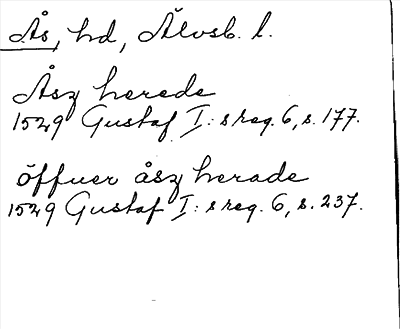 Ås, hd, Älvsb. l.
Åsz herede
1529 Gustaf I: s reg. 6, s. 177.
öffuer åsz herade
1529 Gustaf I: s reg. 6, s. 237.